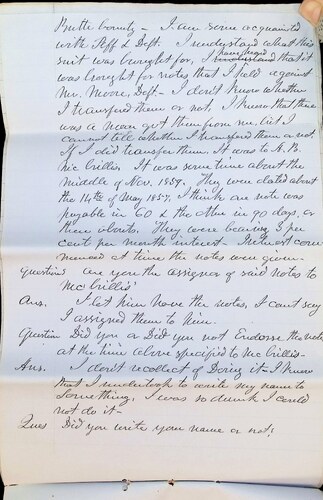 Butte County - I am some acquainted
with Plff & Deft. I understand what this
suit was brought for, I that it
was brought for notes that I held against
Mr. Moore, Deft - I don't know whether
I transfered them or not. I know that there
was a man got them from me, but I
cannot tell whether I transfered them or not.
If I did transfer them. It was to
Mc Crillis. It was some time about the
middle of Nov. 1859. They were dated about
the 14th of May 1857, I think one note was
payable in 60 & the other in 90 days, or
there abouts. They were bearing 3 per
cent per month interest - Interest com
menced at time the notes were given.
Question Are you the assignor of said notes to
McCrillis
Ans. I let him have the notes, I can't say
I assigned them to him.
Question Did you or Did you not Endorse the notes
at the time above specified to McCrillis -
Ans. I don't recollect of Doing it - I know
that I undertook to write my name to
something, I was so drunk I could
not do it -
Ques Did you write your name or not?